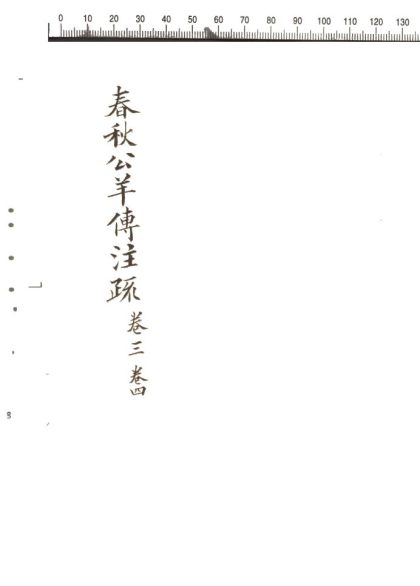 0 10 20 30 40 50 60 70 80 90 100 110 120 130
春秋公羊傳注疏
卷三 卷四
8